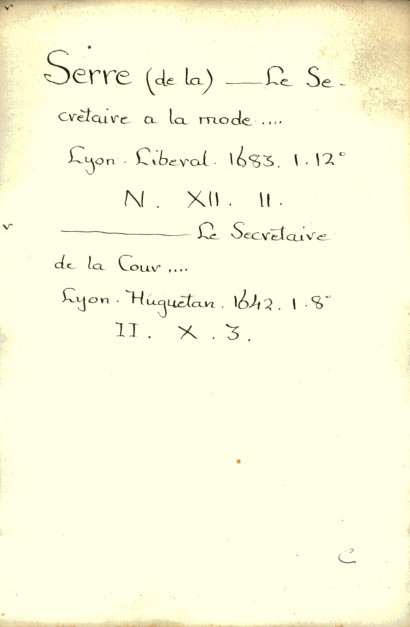 Serre (de la) — Le Se-
crétaire a la mode....
Lyon. Liberal. 1683. 1. 12°
N. XII. II.
——— Le Secrétaire
de la Cour....
Lyon. Huguetan. 1642. 1. 8°
II. X. 3.
C